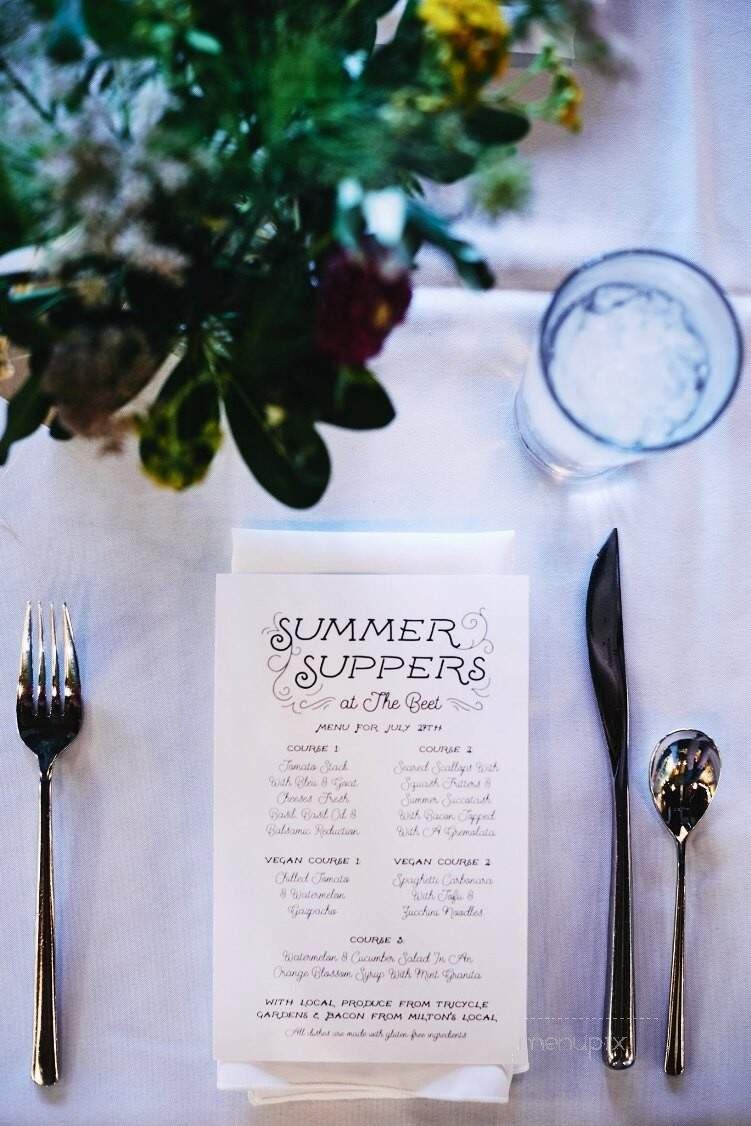 SUMMER
SUPPERS
at The Beet
MENU FOR JULY 29TH
COURSE 1
Tomato Stack
With Bleu & Goat
Cheeses Fresh
Basil, Basil Oil &
Balsamic Reduction
COURSE 2
Seared Scallops With
Squash Fritters &
Summer Succotash
With Bacon Topped
With A Gremolata
VEGAN COURSE 1
Chilled Tomato
& Watermelon
Gazpacho
VEGAN COURSE 2
Spaghetti Carbonara
With Tofu &
Zucchini Noodles
COURSE 3
Watermelon & Cucumber Salad In An
Orange Blossom Syrup With Mint Granita
WITH LOCAL PRODUCE FROM TRICYCLE
GARDENS & BACON FROM MILTON'S LOCAL
All dishes are made with gluten free ingredients
menupix